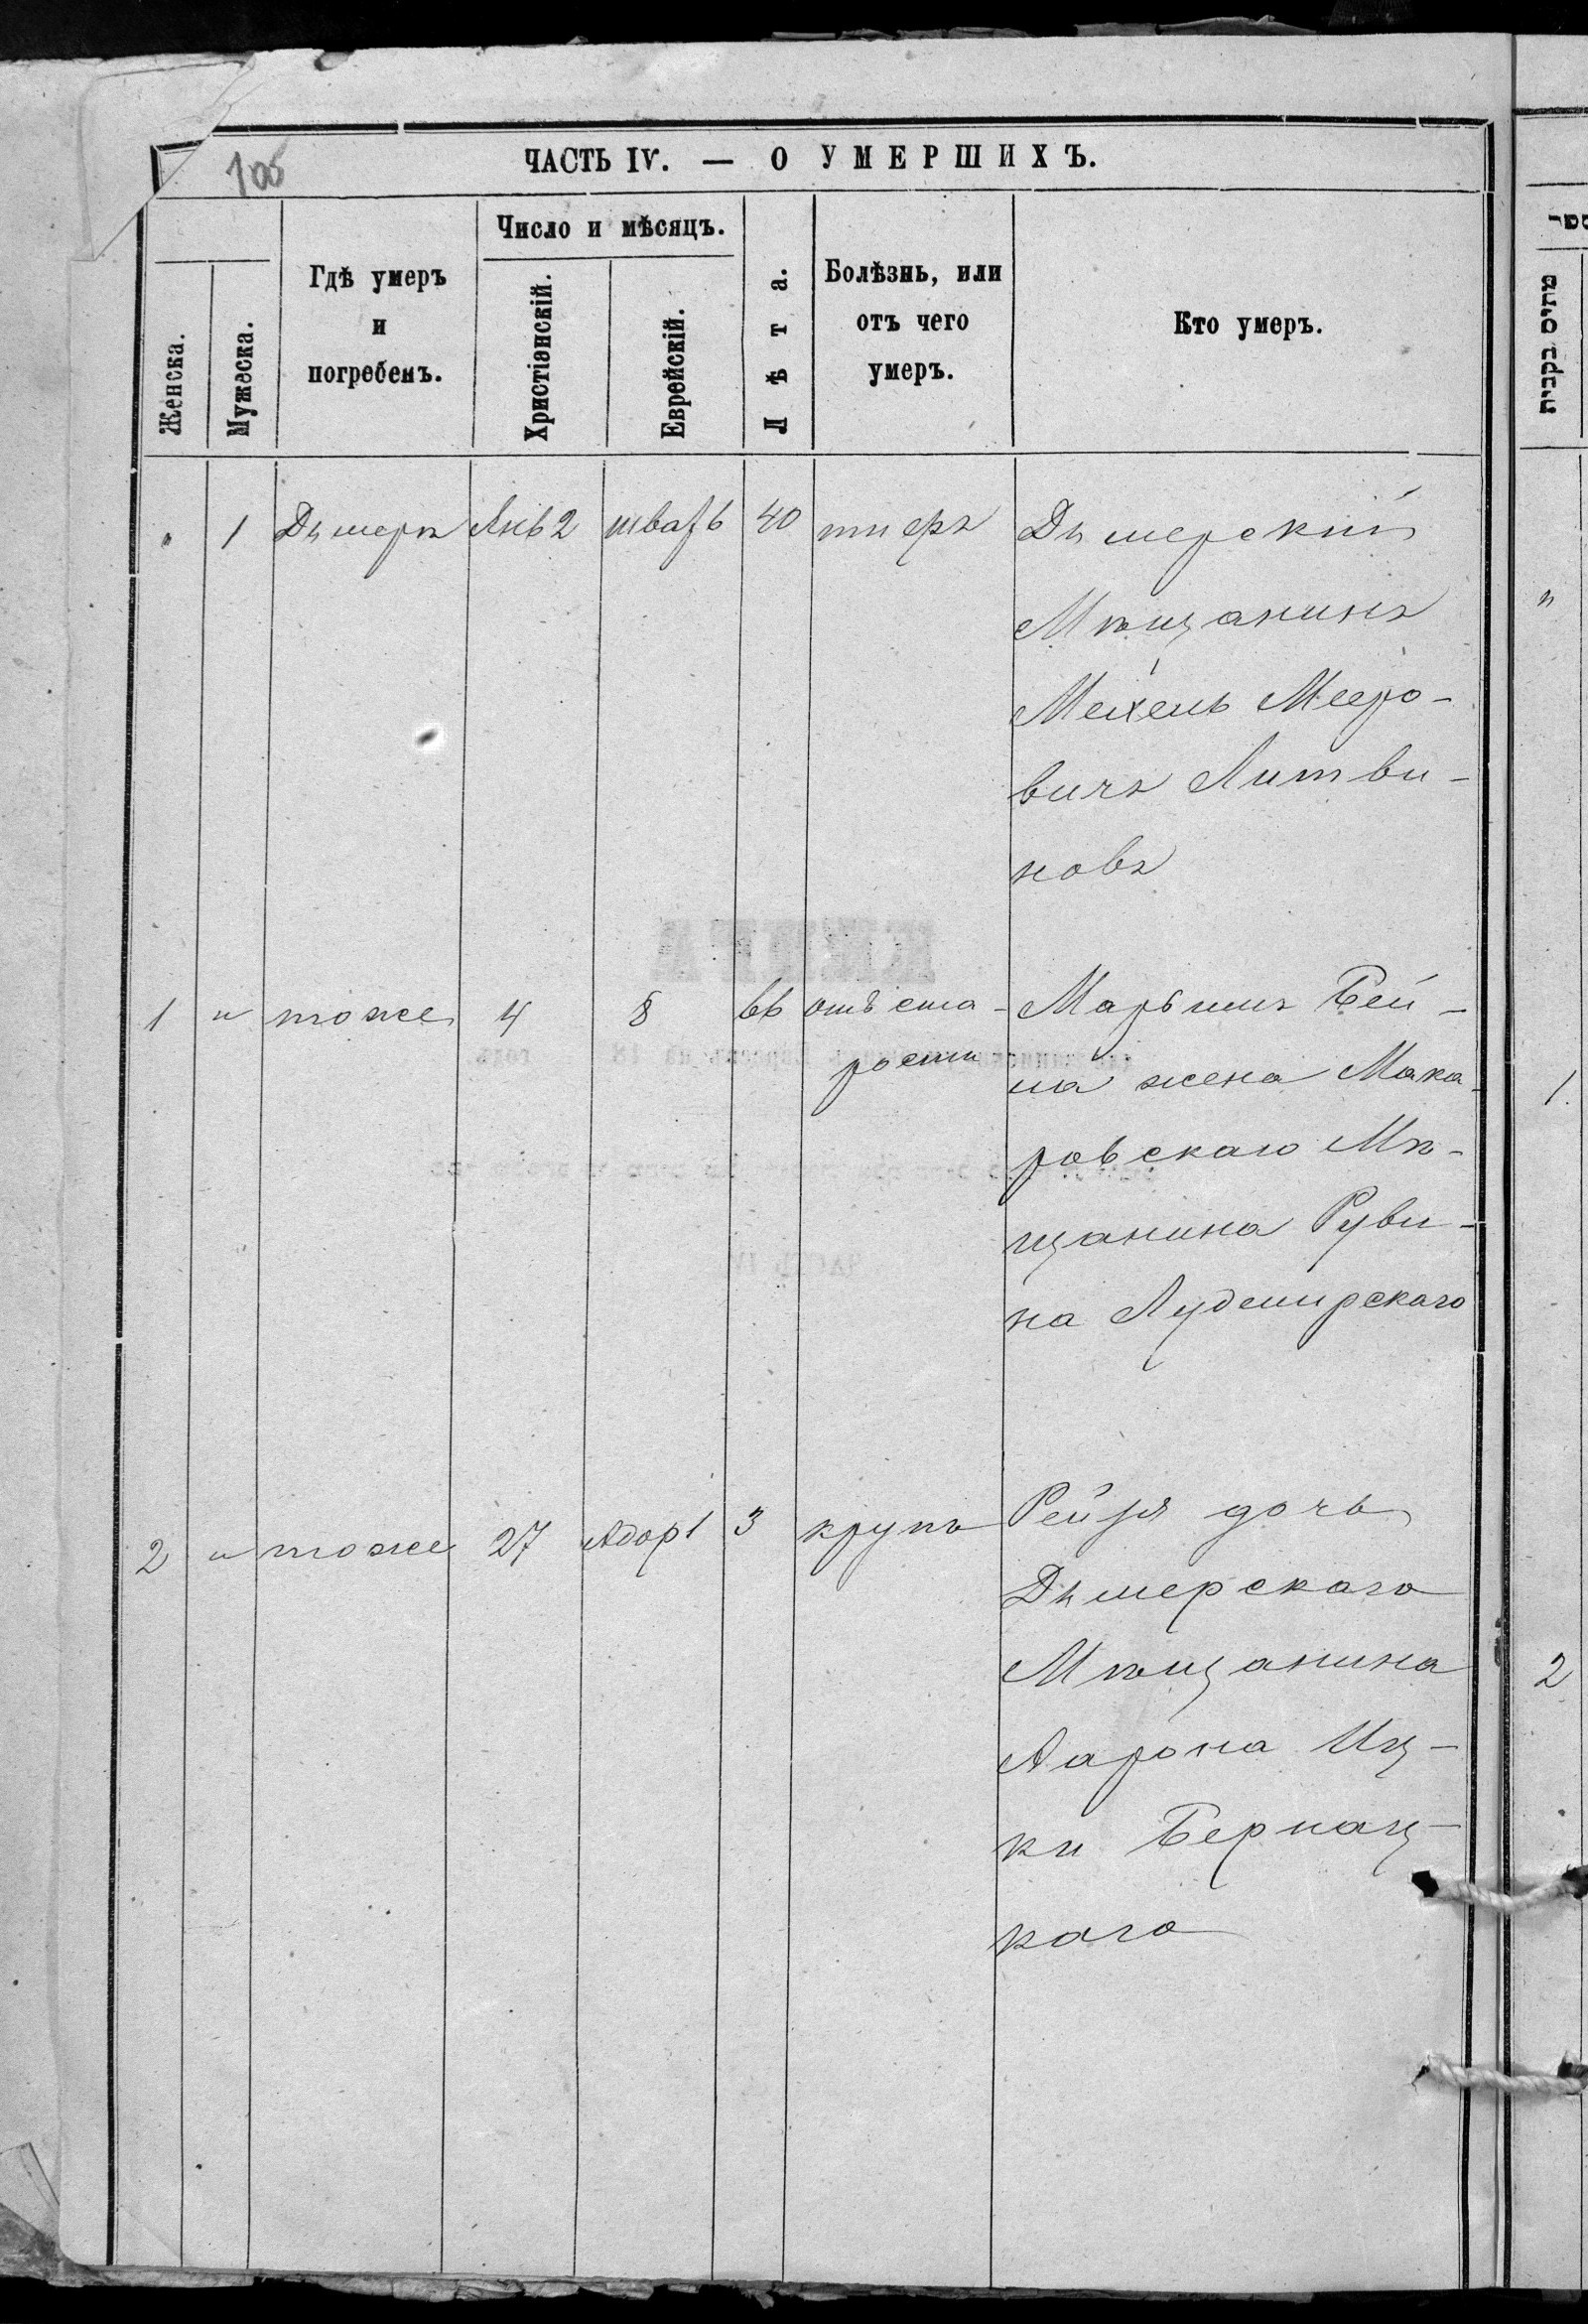 100
ЧАСТЬ IV. — О УМЕРШИХЪ.
Женска.
Мужеска.
Гдѣ умеръ
и
погребенъ.
Число и мѣсяцъ.
Христіенскій.
Еврейскій.
Лѣта.
Болѣзнь, или
отъ чего
умеръ.
Кто умеръ.
" 1 Дымеръ Янв 2 шват 6 40 тифъ Дымерскій
Мѣщанинъ
Мехель Мееро-
вичъ Литви-
новъ
1 " тоже 4 8 66 отъ ста- Марьимъ Бей-
рости
ла жена Мака-
ровскаго Мѣ-
щанина Руви-
на Лудмирскаго
2 " тоже 27 Адор 1 3 крупъ Рейзя дочь
Дымерскаго
Мѣщанина
Аарона Иц-
ки Бернац-
каго
מתים בקבית
"
1.
2